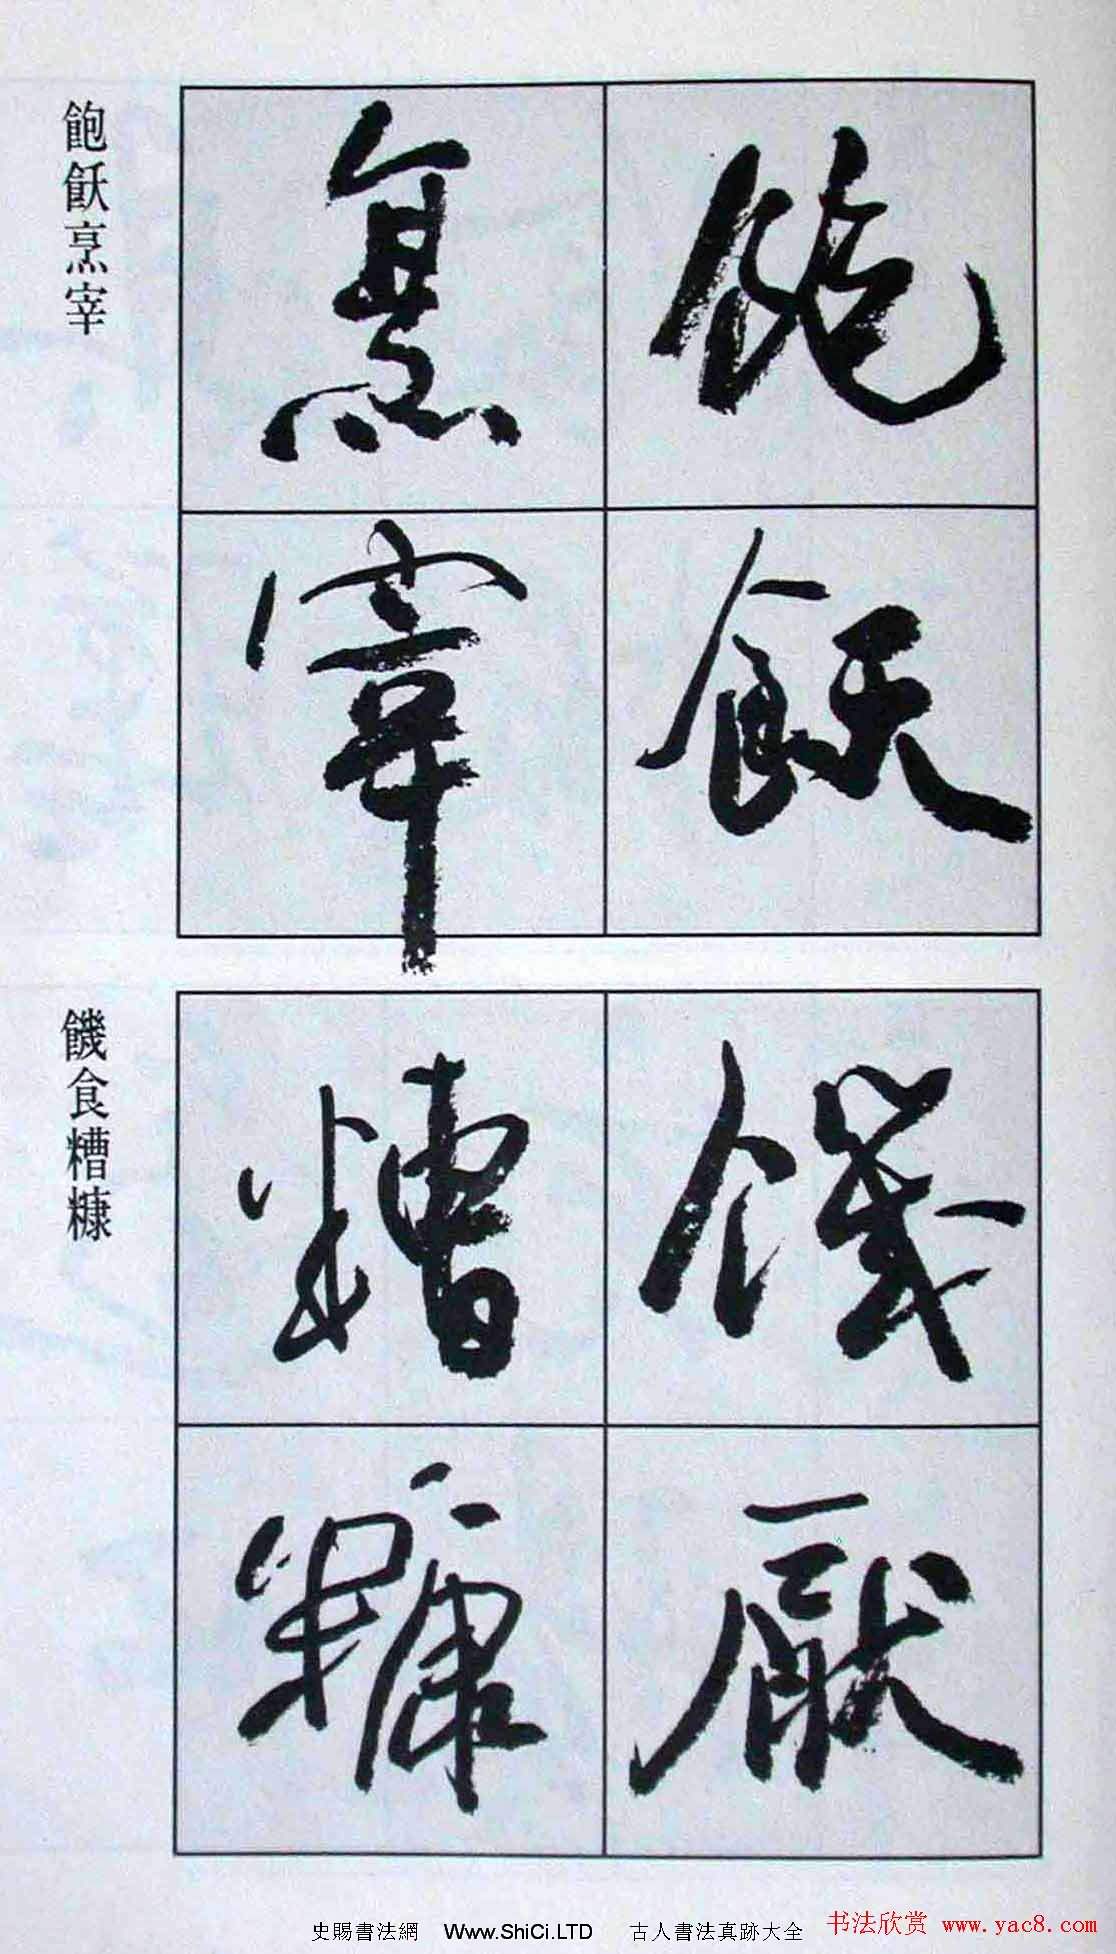 飽飫
烹宰
飽飫烹宰
饑厭
糟糠
饑食糟糠
史賜書法網 Www.ShiCi.LTD 古人書法真跡大全
书法欣赏 www.yac8.com